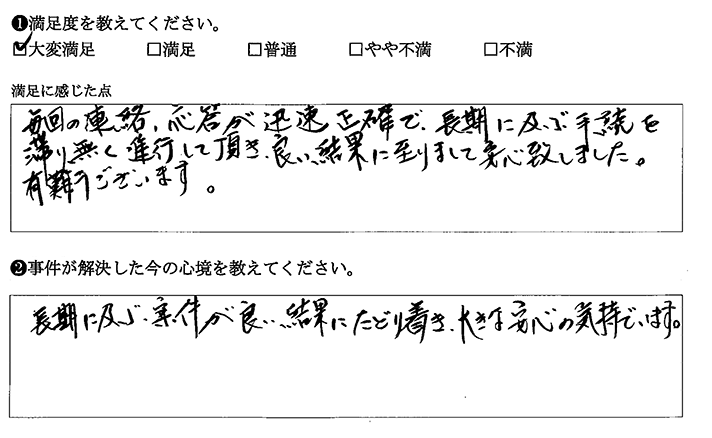 ❶満足度を教えてください。
☑大変満足 □満足 □普通 □やや不満 □不満
満足に感じた点
毎回の連絡、応答が迅速正確で、長期に及ぶ手続を
滞り無く進行して頂き、良い結果に至りまして安心致しました。
有難うございます。
❷事件が解決した今の心境を教えてください。
長期に及ぶ案件が良い結果にたどり着き、大きな安心の気持でいます。